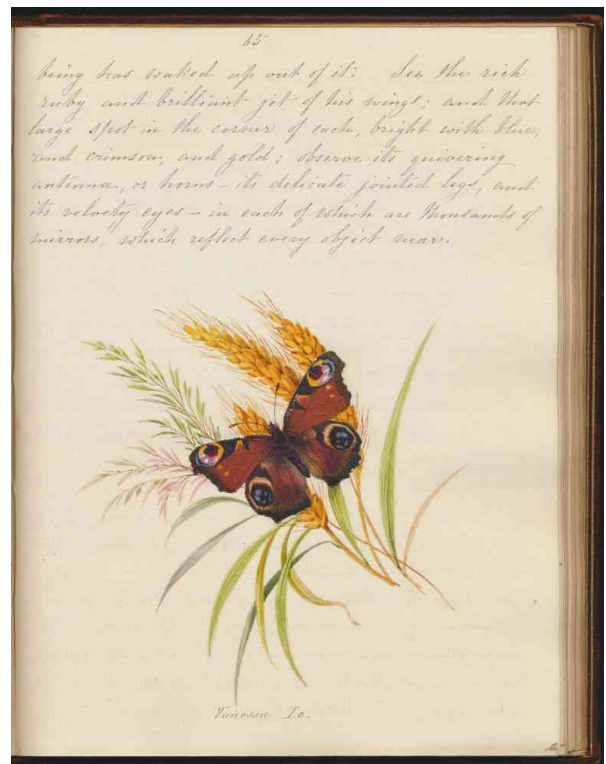 65
being has waked up out of it: See the rich
ruby and brilliant jet of his wings; and that
large spot in the corner of each, bright with blue,
and crimson, and gold; observe its quivering
antennæ, or horns – its delicate jointed legs, and
its velvety eyes – in each of which are thousands of
mirrors, which reflect every object near.
Vanessa Io.